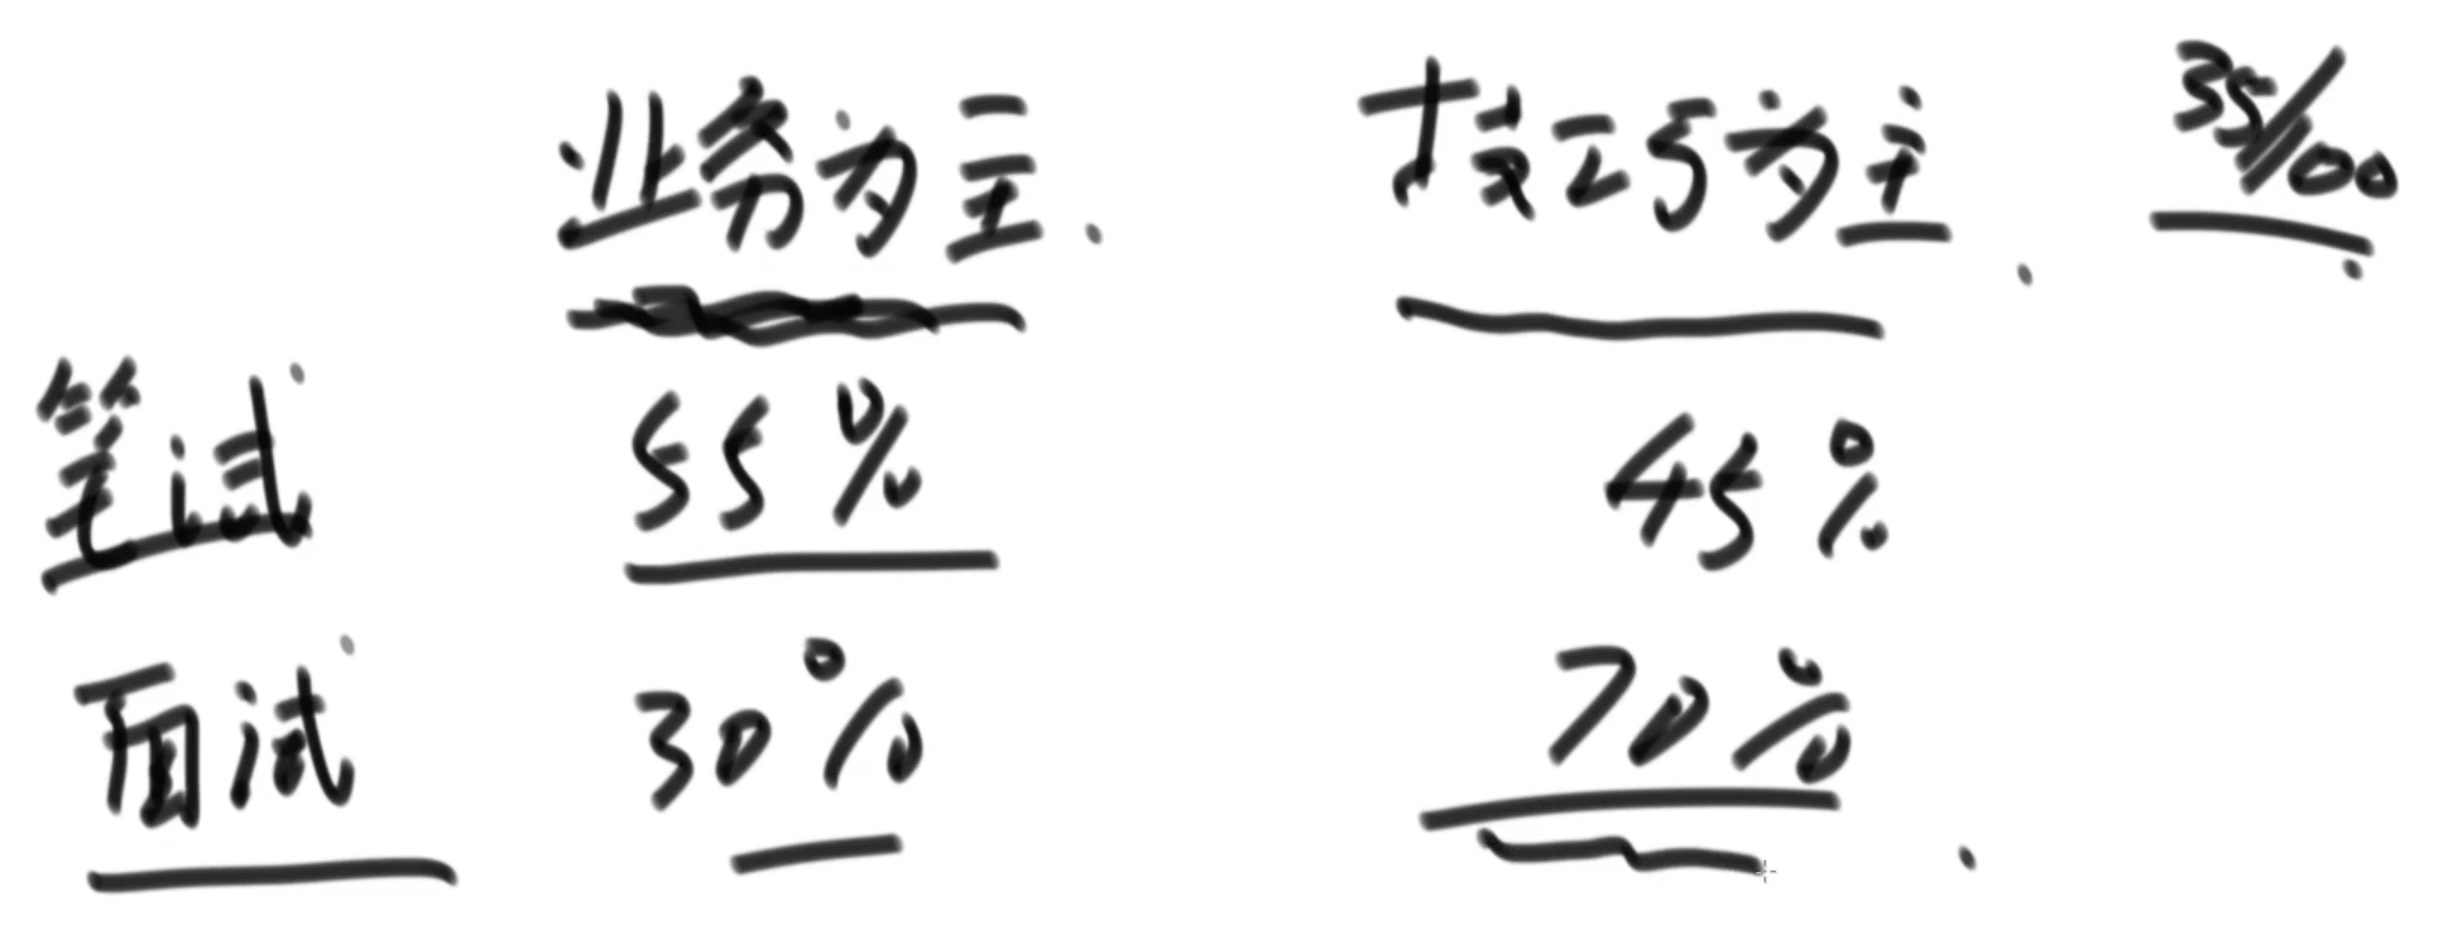 业务为主. 技巧为主. 35/100
笔试 55% 45%
面试 30% 70%